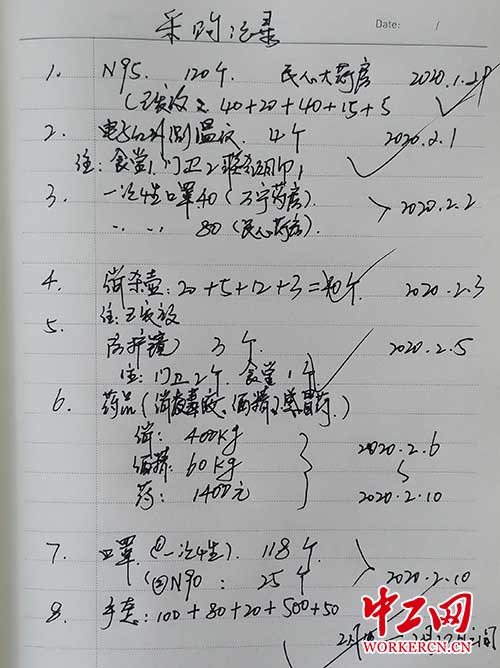 采购记录
Date: /
1. N95. 120个 民心大药房 2020.1.29
(已发放: 40+20+40+15+5
2. 电子红外测温仪. 4个 2020.2.1
注: 食堂1, 门卫2
3. 一次性口罩40(万宁药房). 2020.2.2
〃 〃 80(民心药房).
4. 消杀壶: 20+5+12+3=40个. 2020.2.3
注: 已发放
5. 防护镜) 3个. 2020.2.5
注: 门卫2个. 食堂1个
6. 药品(消毒液、酒精、感冒药.)
消: 400kg 2020.2.6
酒精: 60kg
药: 1400元 2020.2.10
7. 口罩. (①一次性). 118个
(②N90: 25个 2020.2.10
8. 手套: 100+80+20+500+50
中工网
WORKERCN.CN